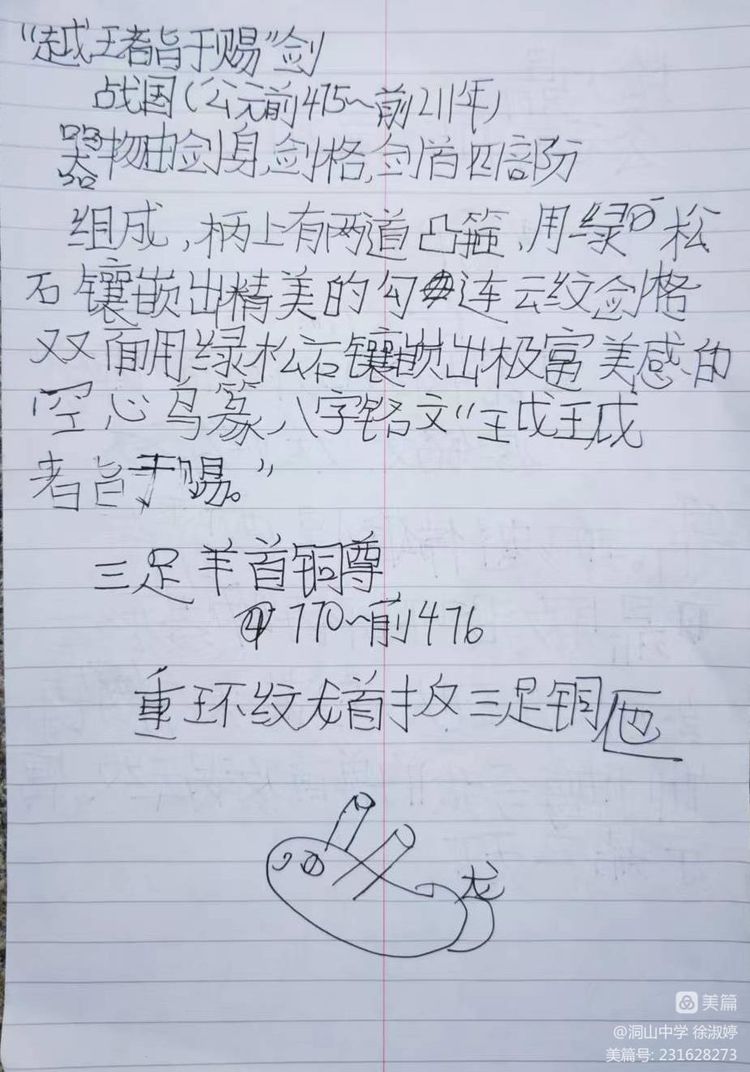 “越王者旨于赐”剑
战国(公元前475~前211年)
器物由剑身,剑格,剑首四部分
组成,柄上有两道凸箍,用绿松
石镶嵌出精美的勾连云纹剑格
双面用绿松石镶嵌出极富美感的
空心鸟篆,八字铭文“王戉王戉
者旨于赐。”
三足羊首铜尊
770~前476
重环纹龙首扳三足铜匜
龙
美篇
@洞山中学 徐淑婷
美篇号: 231628273